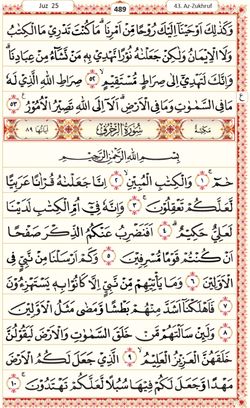 Juz 25
489
43. Az-Zukhruf
وَكَذٰلِكَ اَوْحَيْنَآ اِلَيْكَ رُوْحًا مِّنْ اَمْرِنَا ۗمَا كُنْتَ تَدْرِيْ مَا الْكِتٰبُ
وَلَا الْاِيْمَانُ وَلٰكِنْ جَعَلْنٰهُ نُوْرًا نَّهْدِيْ بِهٖ مَنْ نَّشَاۤءُ مِنْ عِبَادِنَا ۗ
وَاِنَّكَ لَتَهْدِيْٓ اِلٰى صِرَاطٍ مُّسْتَقِيْمٍۙ ٥٢ صِرَاطِ اللّٰهِ الَّذِيْ لَهٗ
مَا فِى السَّمٰوٰتِ وَمَا فِى الْاَرْضِۗ اَلَآ اِلَى اللّٰهِ تَصِيْرُ الْاُمُوْرُ ࣖ ٥٣
مكيّة سُوْرَةُ الزُّخْرُفِ اٰياتها ٨٩
بِسْمِ اللّٰهِ الرَّحْمٰنِ الرَّحِيْمِ
حٰمۤ ۚ ١ وَالْكِتٰبِ الْمُبِيْنِ ۙ ٢ اِنَّا جَعَلْنٰهُ قُرْاٰنًا عَرَبِيًّا
لَّعَلَّكُمْ تَعْقِلُوْنَۚ ٣ وَاِنَّهٗ فِيْٓ اُمِّ الْكِتٰبِ لَدَيْنَا
لَعَلِيٌّ حَكِيْمٌ ۗ ٤ اَفَنَضْرِبُ عَنْكُمُ الذِّكْرَ صَفْحًا
اَنْ كُنْتُمْ قَوْمًا مُّسْرِفِيْنَ ٥ وَكَمْ اَرْسَلْنَا مِنْ نَّبِيٍّ فِى
الْاَوَّلِيْنَ ٦ وَمَا يَأْتِيْهِمْ مِّنْ نَّبِيٍّ اِلَّا كَانُوْا بِهٖ يَسْتَهْزِءُوْنَ
٧ فَاَهْلَكْنَآ اَشَدَّ مِنْهُمْ بَطْشًا وَّمَضٰى مَثَلُ الْاَوَّلِيْنَ
٨ وَلَىِٕنْ سَاَلْتَهُمْ مَّنْ خَلَقَ السَّمٰوٰتِ وَالْاَرْضَ لَيَقُوْلُنَّ
خَلَقَهُنَّ الْعَزِيْزُ الْعَلِيْمُۙ ٩ الَّذِيْ جَعَلَ لَكُمُ الْاَرْضَ
مَهْدًا وَّجَعَلَ لَكُمْ فِيْهَا سُبُلًا لَّعَلَّكُمْ تَهْتَدُوْنَ ۚ ١٠